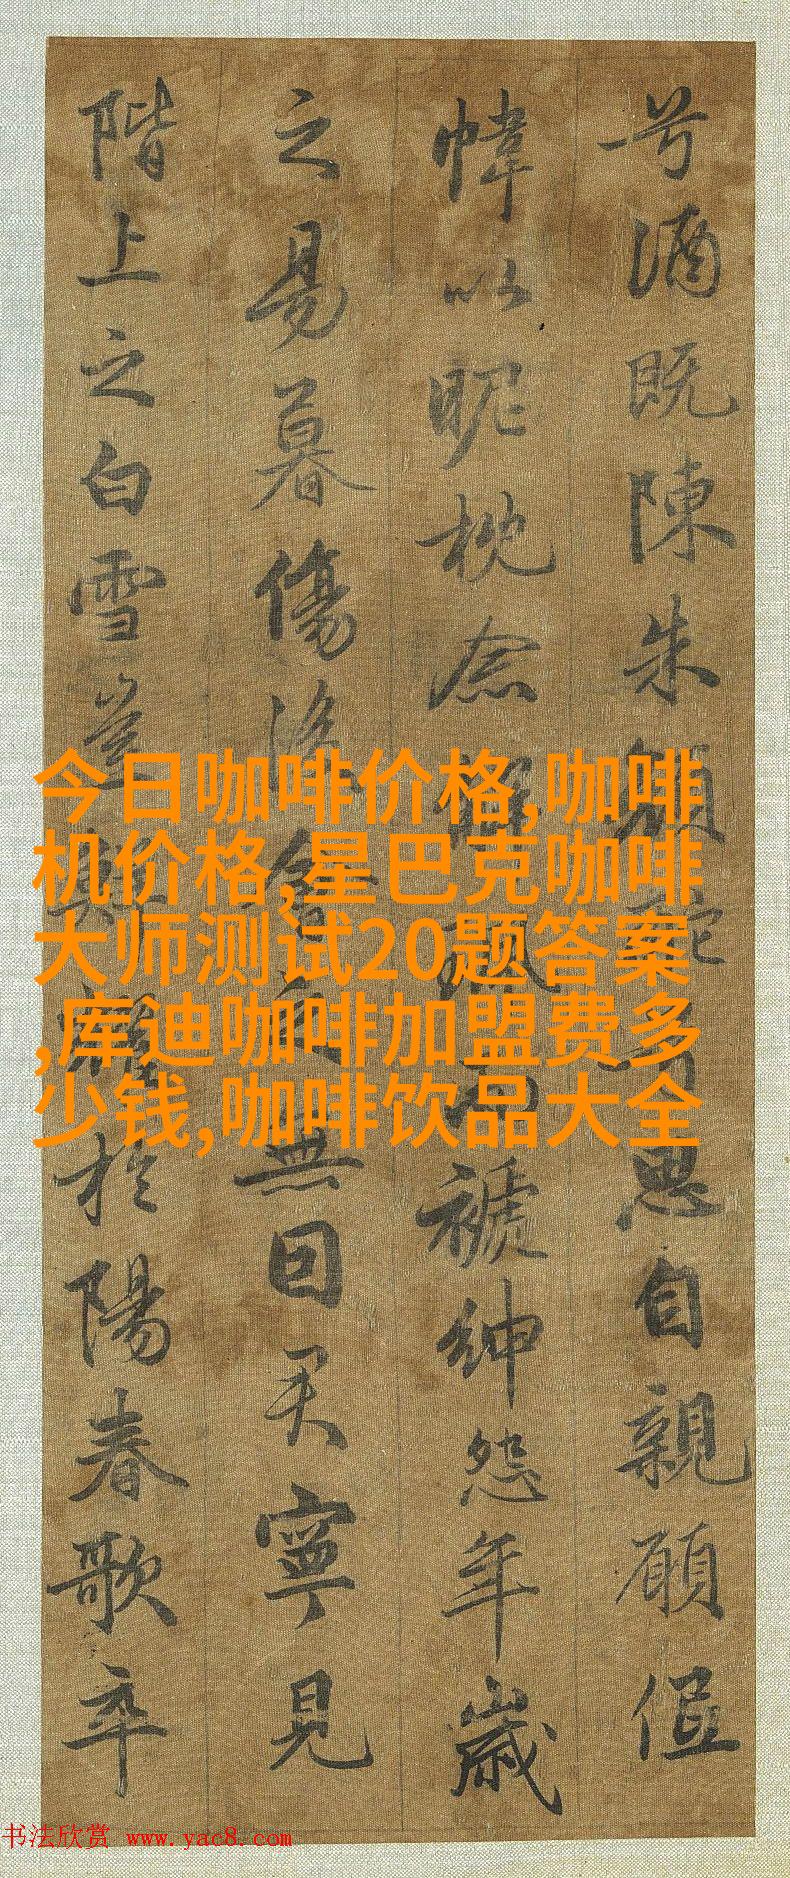 兮酒既陳朱顏酡兮思自親願低
幃以昵枕念解珮而褫紳怨年歲
之易暮傷後會之無因君寧見
階上之白雪豈鮮耀於陽春歌卒
今日咖啡价格,咖啡
机价格,星巴克咖啡
大师测试20题答案
,库迪咖啡加盟费多
少钱,咖啡饮品大全
书法欣赏 www.yac8.com